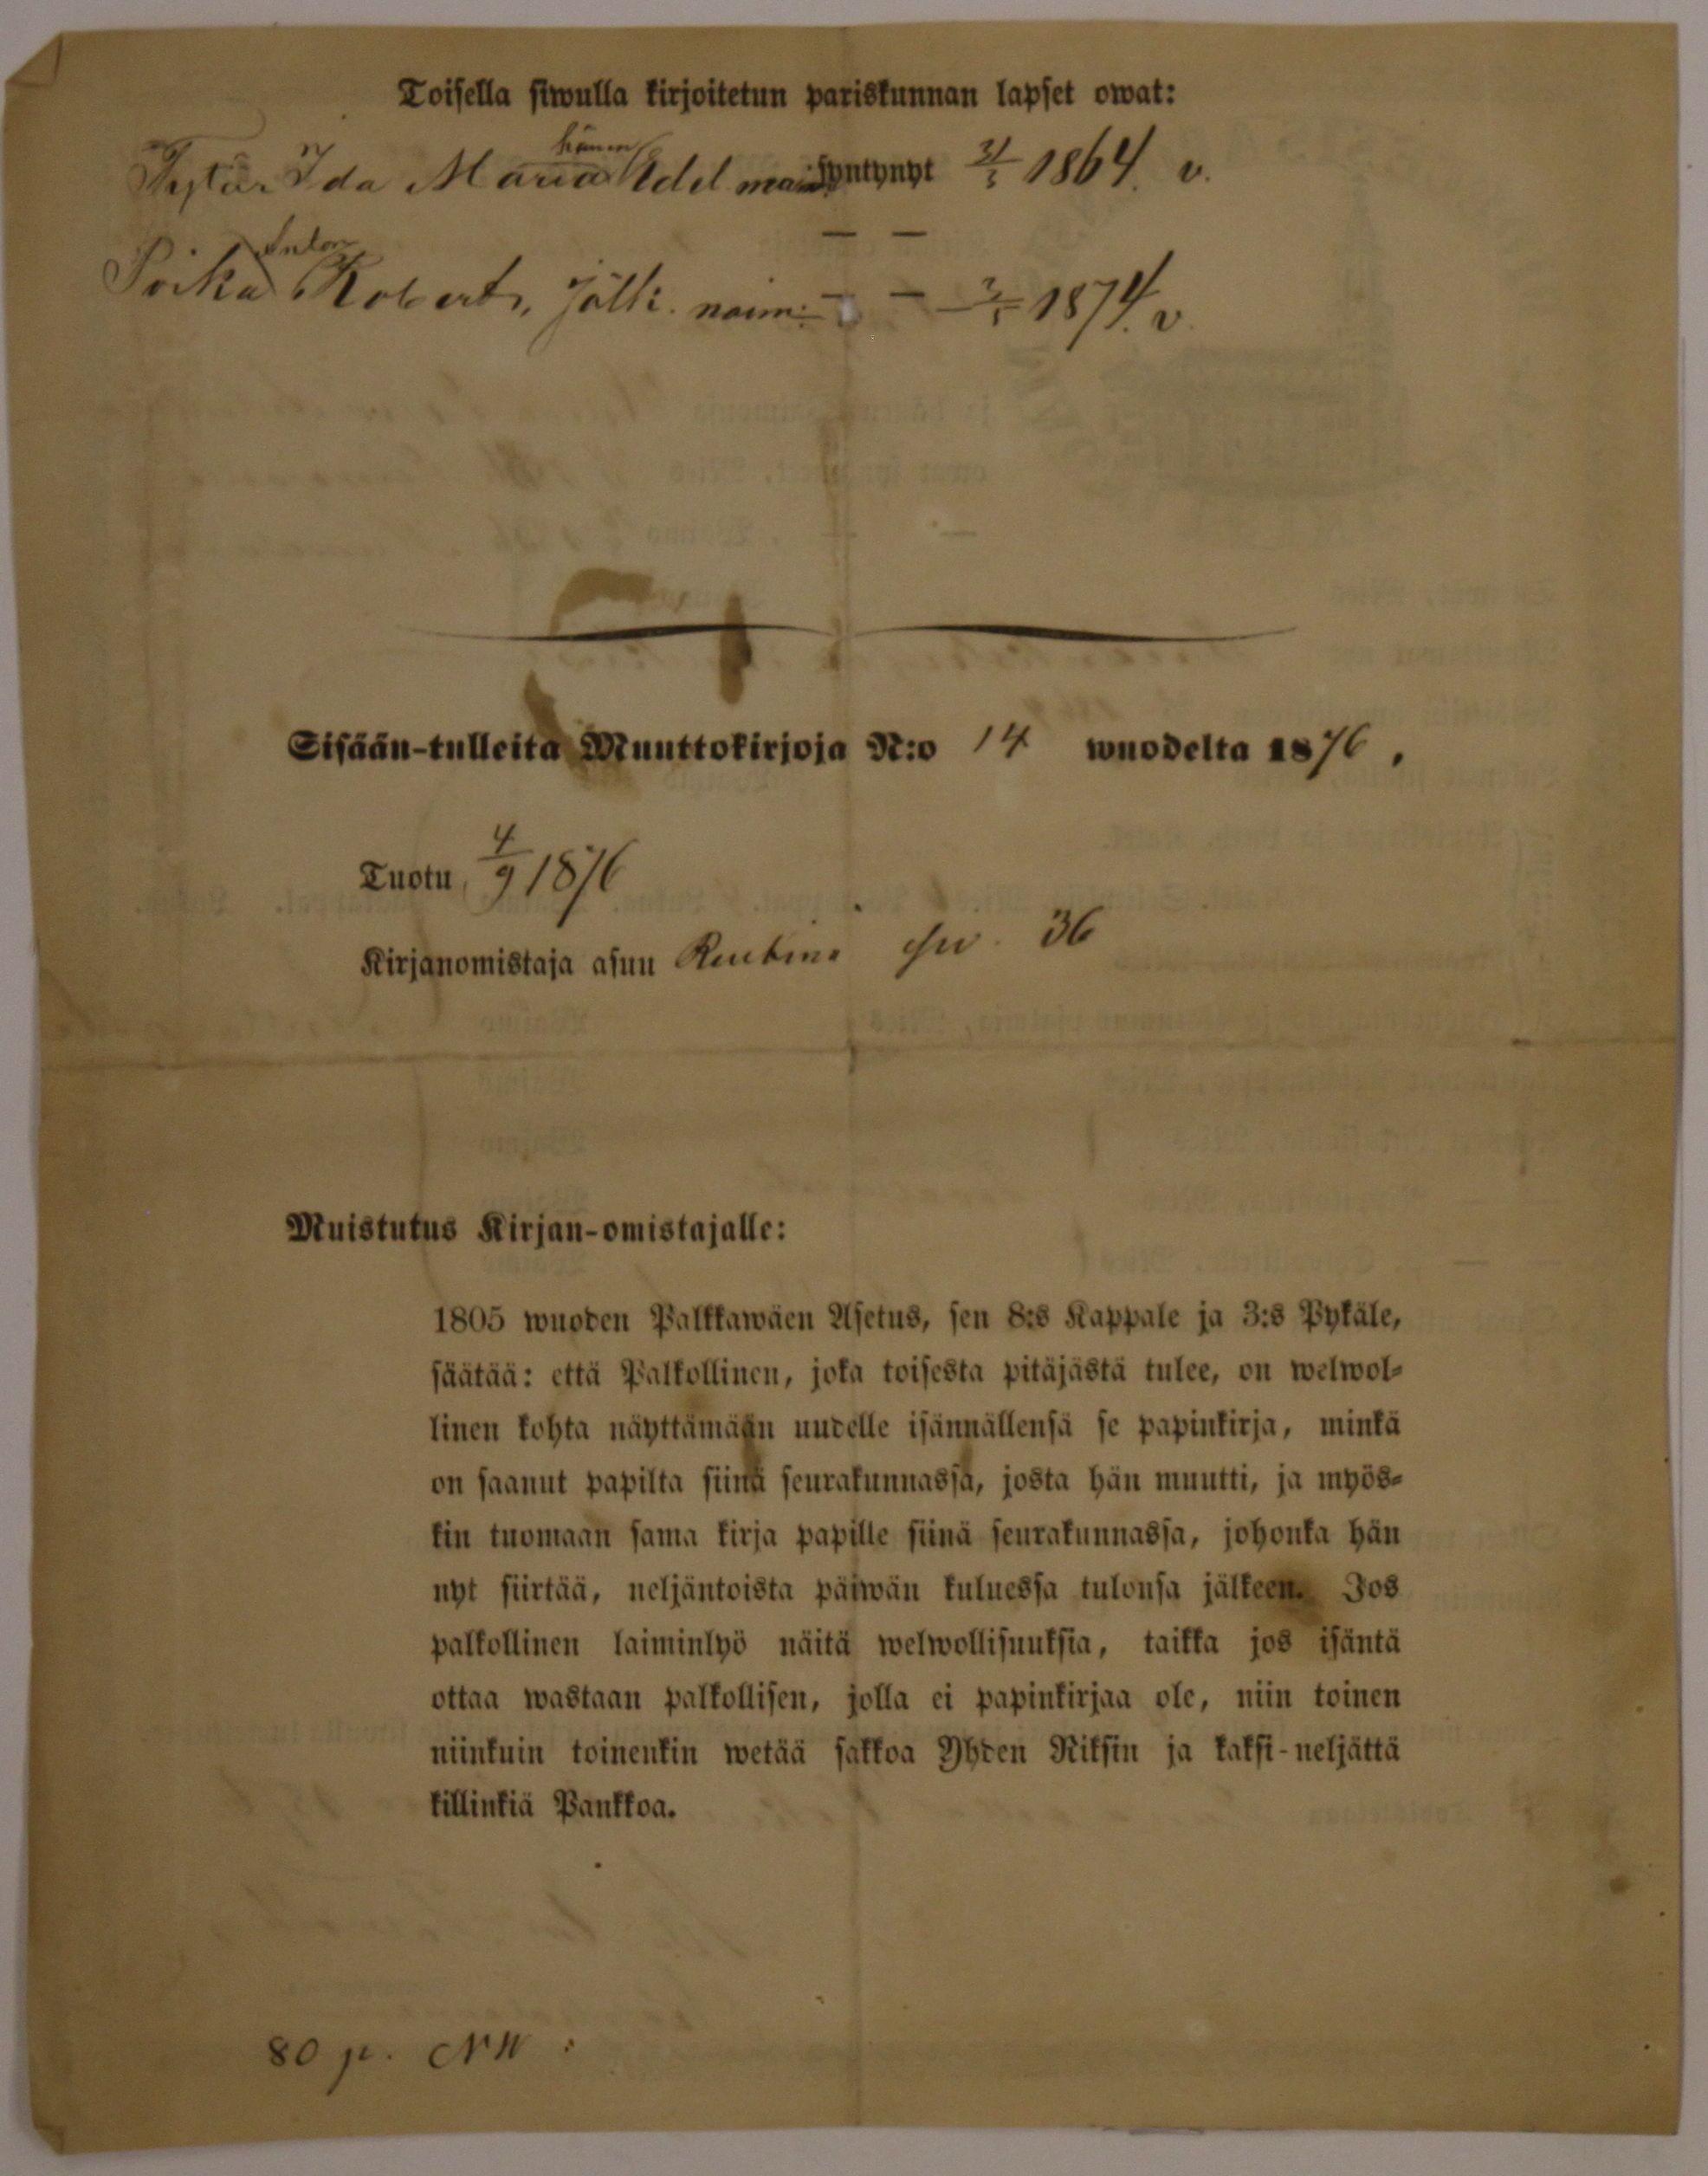 Toisella siwulla kirjoitetun pariskunnan lapset owat:
hänen
Tytär Ida Maria Edel. syntynyt 31/3 1864. v.
— —
Anton
Poika Robert, jälk. naim: — — 3/5 1874. v.
Sisään-tulleita Muuttokirjoja N:o 14 wuodelta 1876.
Tuotu 4/9 1876
Kirjanomistaja asuu siv. 36
Muistutus Kirjan-omistajalle:
1805 wuoden Palkkawäen Asetus, sen 8:s Kappale ja 3:s Pykäle,
säätää: että Palkollinen, joka toisesta pitäjästä tulee, on welwol-
linen kohta näyttämään uudelle isännällensä se papinkirja, minkä
on saanut papilta siinä seurakunnassa, josta hän muutti, ja myös-
kin tuomaan sama kirja papille siinä seurakunnassa, johonka hän
nyt siirtää, neljäntoista päiwän kuluessa tulonsa jälkeen. Jos
palkollinen laiminlyö näitä welwollisuuksia, taikka jos isäntä
ottaa wastaan palkollisen, jolla ei papinkirjaa ole, niin toinen
niinkuin toinenkin wetää sakkoa Yhden Riksin ja kaksi-neljättä
killinkiä Pankkoa.
80 p. NW: